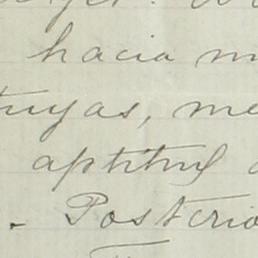 hacia m
tuyas, me
aptitud
. Posterio